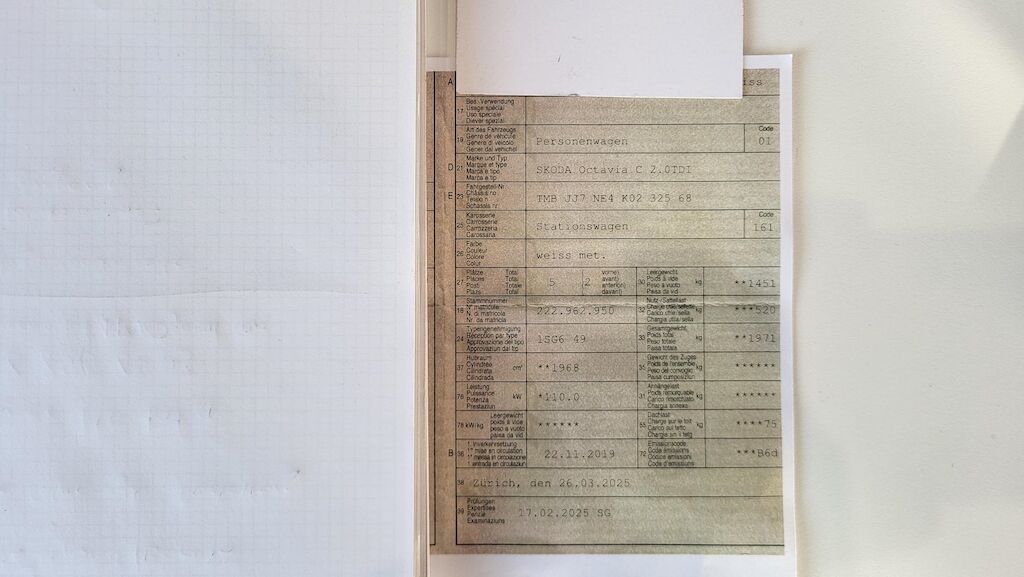 A iss
17 Bes. Verwendung
Usage spécial
Uso speciale
Diever spezial
19 Art des Fahrzeugs
Genre de véhicule
Genere di veicolo
Gener dal vehichel
Personenwagen
Code
01
D 21 Marke und Typ
Marque et type
Marca e tipo
Marca e tip
SKODA Octavia C 2.0TDI
E 23 Fahrgestell-Nr.
Châssis no
Telaio n.
Schassis nr.
TMB JJ7 NE4 K02 325 68
25 Karosserie
Carrosserie
Carrozzeria
Carossaria
Stationswagen
Code
161
26 Farbe
Couleur
Colore
Colur
weiss met.
27 Plätze Total
Places Total
Posti Totale
Plazs Total
5 2
vorne)
avant)
anteriori)
davant)
30 Leergewicht
Poids à vide
Peso a vuoto
Paisa da vid
kg **1451
18 Stammnummer
N° matricule
N. di matricola
Nr. da matricla
222.962.950
32 Nutz-/Sattellast
Charge utile/sellette
Carico utile/sella
Chargia utila/sella
kg ***520
24 Typengenehmigung
Réception par type
Approvazione del tipo
Approvaziun dal tip
1SG6 49
33 Gesamtgewicht
Poids total
Peso totale
Paisa totala
kg **1971
37 Hubraum
Cylindrée
Cilindrata
Cilindrada
cm³ **1968
35 Gewicht des Zuges
Poids de l'ensemble
Peso del convoglio
Paisa cumposiziun
******
76 Leistung
Puissance
Potenza
Prestaziun
kW *110.0
31 Anhängelast
Poids remorquable
Carico rimorchiato
Chargia annexa
kg ******
78 kW/kg Leergewicht
poids à vide
peso a vuoto
paisa da vid
******
55 Dachlast
Charge sur le toit
Carico sul tetto
Chargia sin il tetg
kg ****75
B 36 1. Inverkehrsetzung
1re mise en circulation
1a messa in circolazione
1. entrada en circulaziun
22.11.2019
72 Emissionscode
Code émissions
Codice emissioni
Code d'emissions
***B6d
38 Zürich, den 26.03.2025
39 Prüfungen
Expertises
Perizie
Examinaziuns
17.02.2025 SG